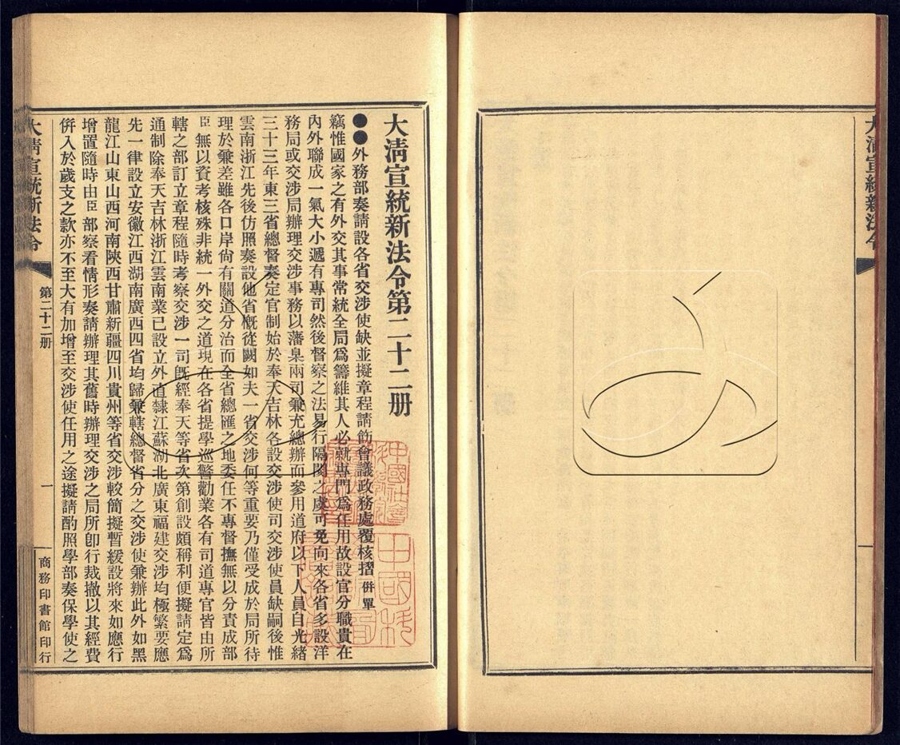 大清宣統新法令
大清宣統新法令第二十二册
●●外務部奏請設各省交涉使缺並擬章程請飭會議政務處覆核摺 併單
竊惟國家之有外交其事常統全局爲籌維其人必就專門爲任用故設官分職貴在
內外聯成一氣大小遞有專司然後督察之法易行隔閡之處可免向來各省多設洋
務局或交涉局辦理交涉事務以藩臬兩司兼充總辦而參用道府以下人員自光緒
三十三年東三省總督奏定官制始於奉天吉林各設交涉使司交涉使員缺嗣後惟
雲南浙江先後仿照奏設他省槪從闕如夫一省交涉何等重要乃僅受成於局所待
理於兼差雖各口岸尙有關道分治而全省總匯之地委任不專督撫無以分責成部
臣無以資考核殊非統一外交之道現在各省提學巡警勸業各有司道專官皆由所
轄之部訂立章程隨時考察交涉一司旣經奉天等省次第創設頗稱利便擬請定爲
通制除奉天吉林浙江雲南業已設立外直隸江蘇湖北廣東福建交涉均極繁要應
先一律設立安徽江西湖南廣西四省均歸兼轄總督省分之交涉使兼辦此外如黑
龍江山東山西河南陝西甘肅新疆四川貴州等省交涉較簡擬暫緩設將來如應行
增置隨時由臣部察看情形奏請辦理其舊時辦理交涉之局所卽行裁撤以其經費
併入於歲支之款亦不至大有加增至交涉使任用之途擬請酌照學部奏保學使之
大清宣統新法令 第二十二册 一 商務印書館印行